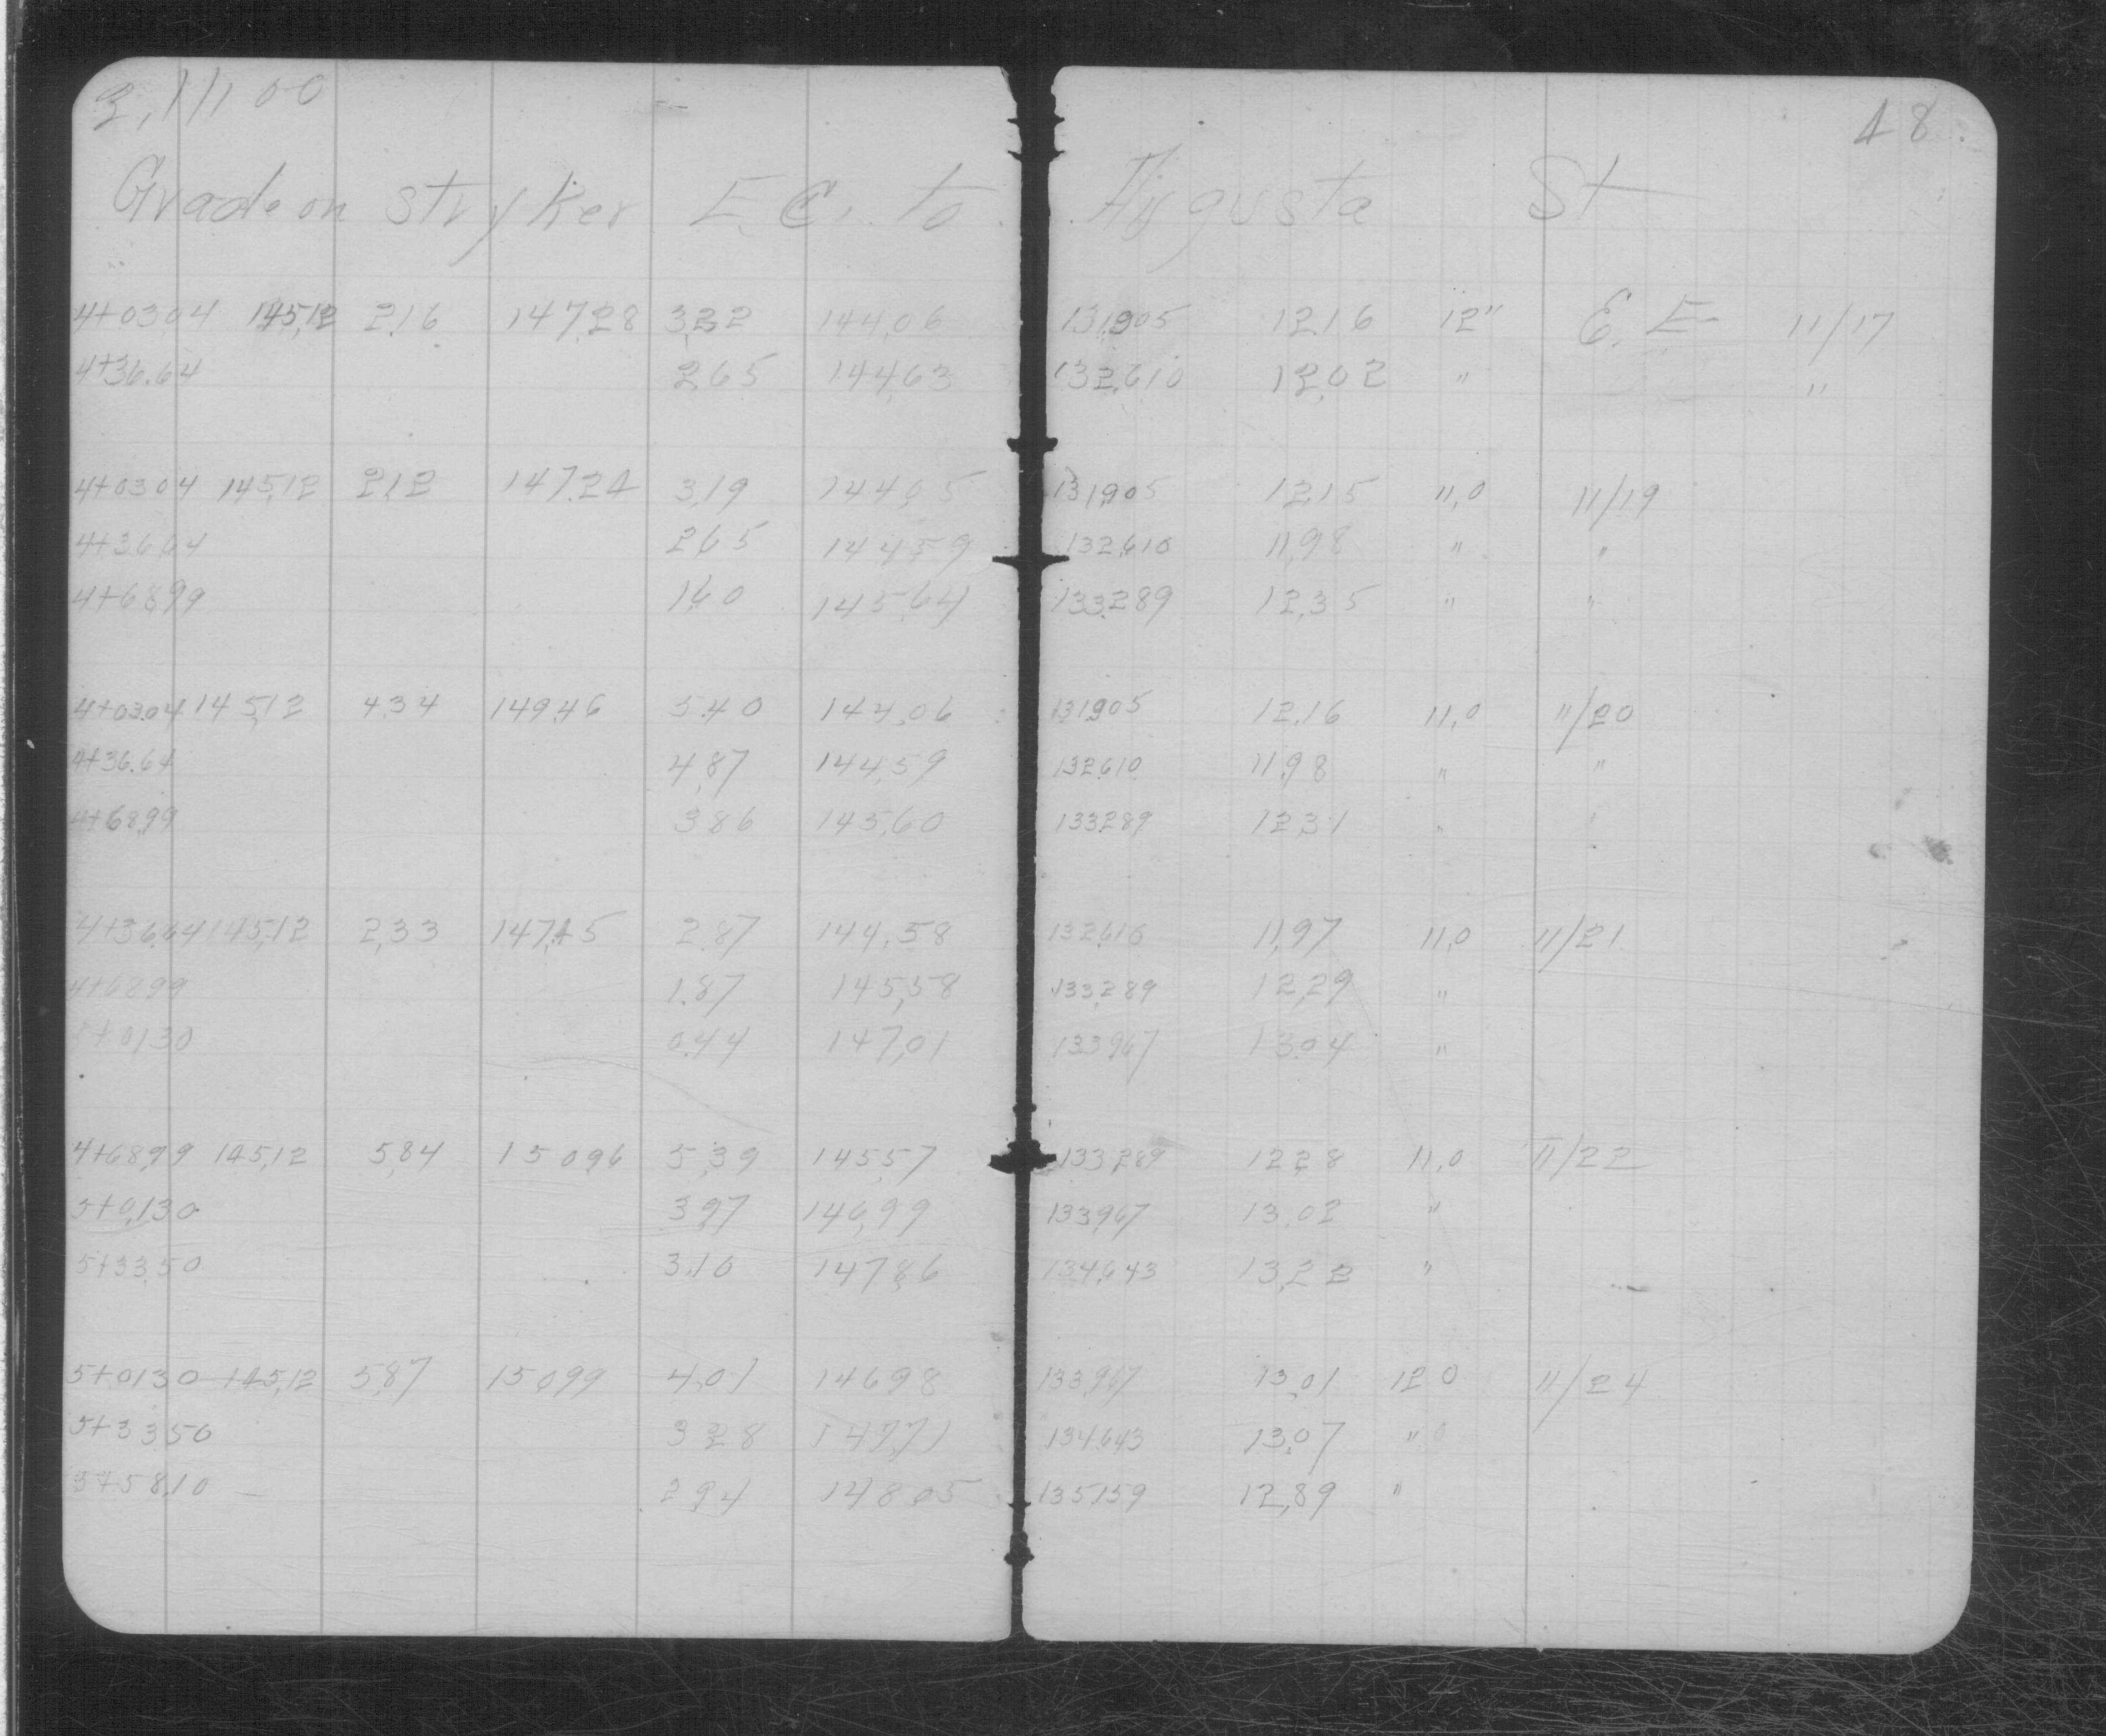 48
Grade on Stryker E.C. to Augusta St
4+03.04 145,12 2,16 147,28 3,22 144,06 131,905 12,16 12" E. E 11/17
4+36.64 2,65 144,63 132,610 12,02 " "
4+03 04 145,12 2,12 147,24 3,19 144,05 131,905 12,15 11,0 11/19
4+36,64 2,65 144,59 132,610 11,98 " "
4+68,99 1,60 145,64 133,289 12,35 " "
4+03.04 145,12 4,34 149,46 5,40 144,06 131,905 12,16 11,0 11/20
4+36.64 4,87 144,59 132,610 11,98 " "
4+68,99 3,86 145,60 133,289 12,31 " "
4+36,64 145,12 2,33 147,45 2,87 144,58 132,610 11,97 11,0 11/21
4+68,99 1,87 145,58 133,289 12,29 "
5+01,30 0,44 147,01 133,967 13,04 "
4+68,99 145,12 5,84 150,96 5,39 145,57 133,289 12,28 11,0 11/22
5+01,30 3,97 146,99 133,967 13,02 "
5+33,50 3,10 147,86 134,643 13,22 "
5+01,30 145,12 5,87 150,99 4,01 146,98 133,967 13,01 12 0 11/24
5+33,50 3,28 147,71 134,643 13,07 "
5+58,10 2,94 148,05 135,159 12,89 "